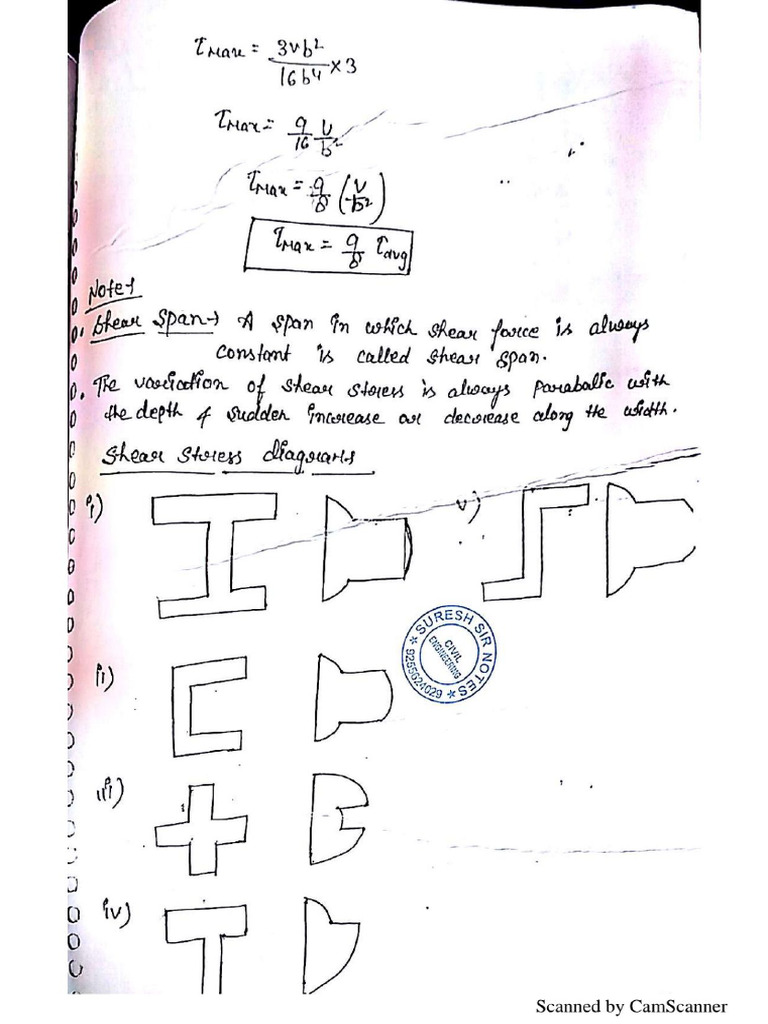 τMax = 3Vb²/16b⁴ × 3
τMax = 9/16 V/b²
τMax = 9/8 (V/b²)
τMax = 9/8 τavg
Note→
Shear Span→ A span in which shear force is always
constant is called shear span.
The variation of shear stress is always parabolic with
the depth & sudden increase or decrease along the width.
Shear stress diagrams
i)
v)
ii)
iii)
iv)
SURESH SIR NOTES
CIVIL
ENGINEERING
9255624029
Scanned by CamScanner